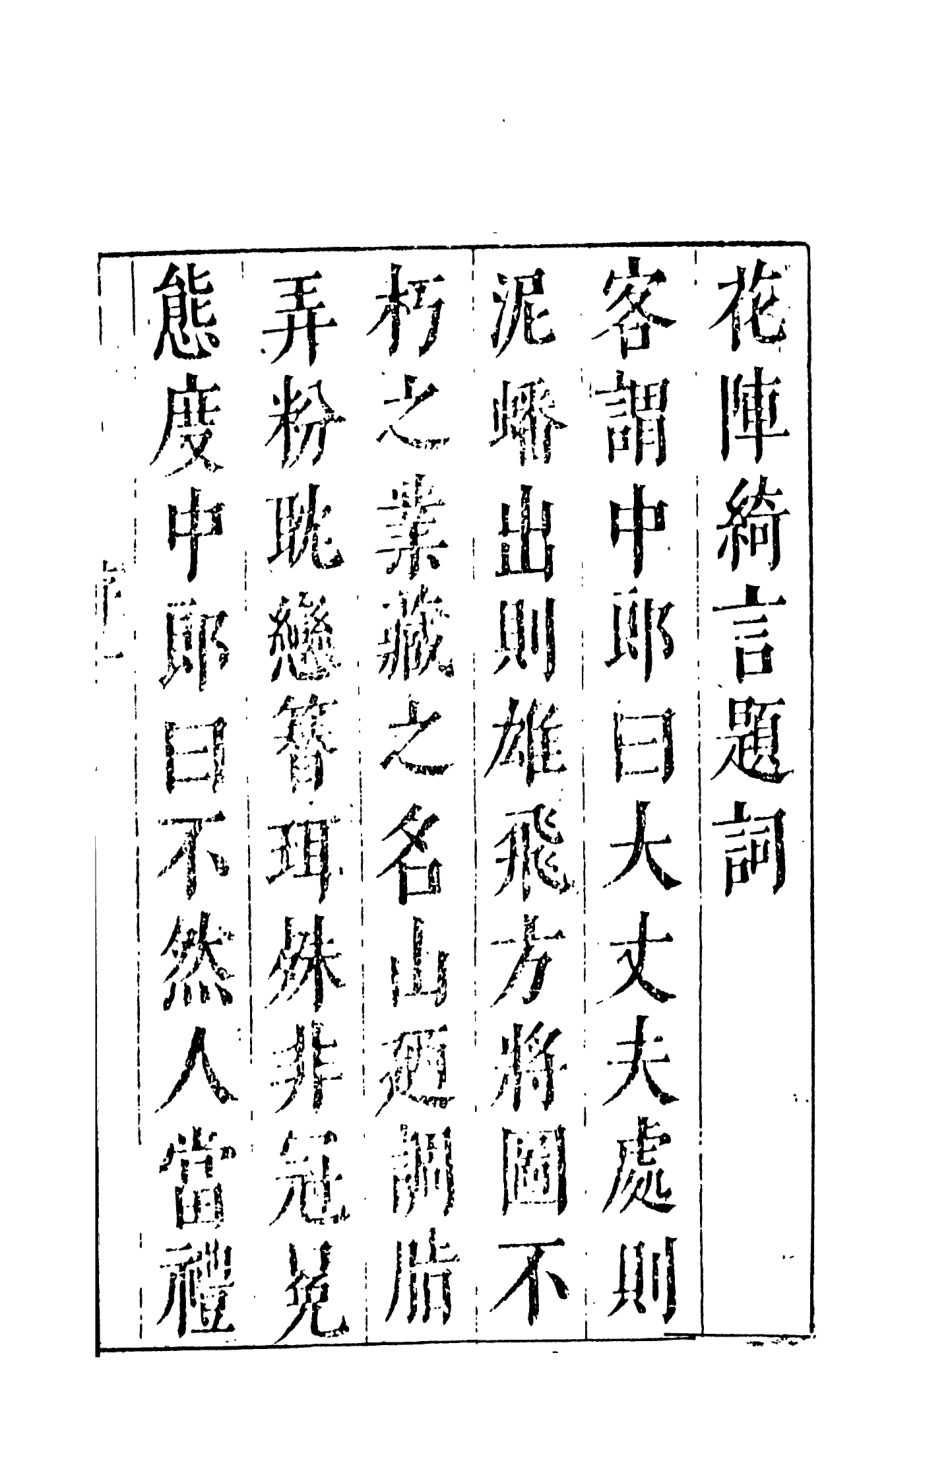 花陣綺言題詞
客謂中郎曰大丈夫處則
泥蟠出則雄飛方將圖不
朽之業藏之名山廼調脂
弄粉耽戀簪珥殊非冠冕
態度中郎曰不然人當禮
序一